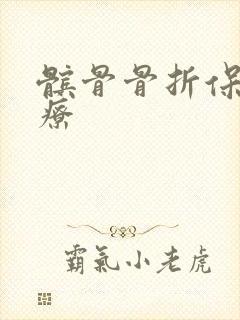 髕骨骨折保
療
霸氣小老虎